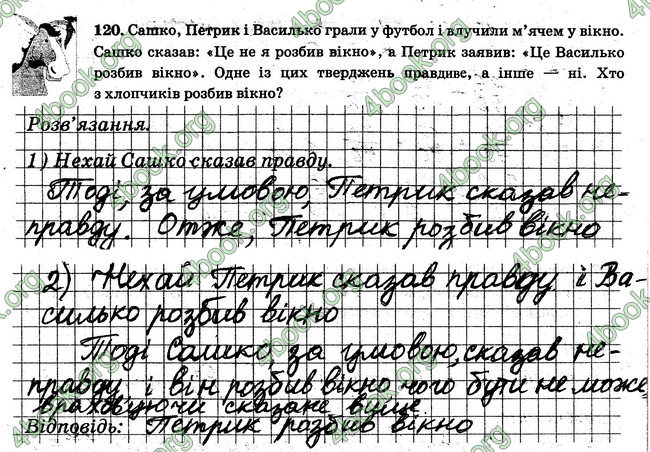 120. Сашко, Петрик і Василько грали у футбол і влучили м’ячем у вікно.
Сашко сказав: «Це не я розбив вікно», а Петрик заявив: «Це Василько
розбив вікно». Одне із цих тверджень правдиве, а інше — ні. Хто
з хлопчиків розбив вікно?
Розв’язання.
1) Нехай Сашко сказав правду.
Тоді, за умовою, Петрик сказав не-
правду. Отже, Петрик розбив вікно
2) Нехай Петрик сказав правду і Ва-
силько розбив вікно
Тоді Сашко за умовою, сказав не-
правду і він розбив вікно чого бути не може,
враховуючи сказане вище
Відповідь: Петрик розбив вікно
4book.org
4book.org
4book.org
4book.org
4book.org
4book.org